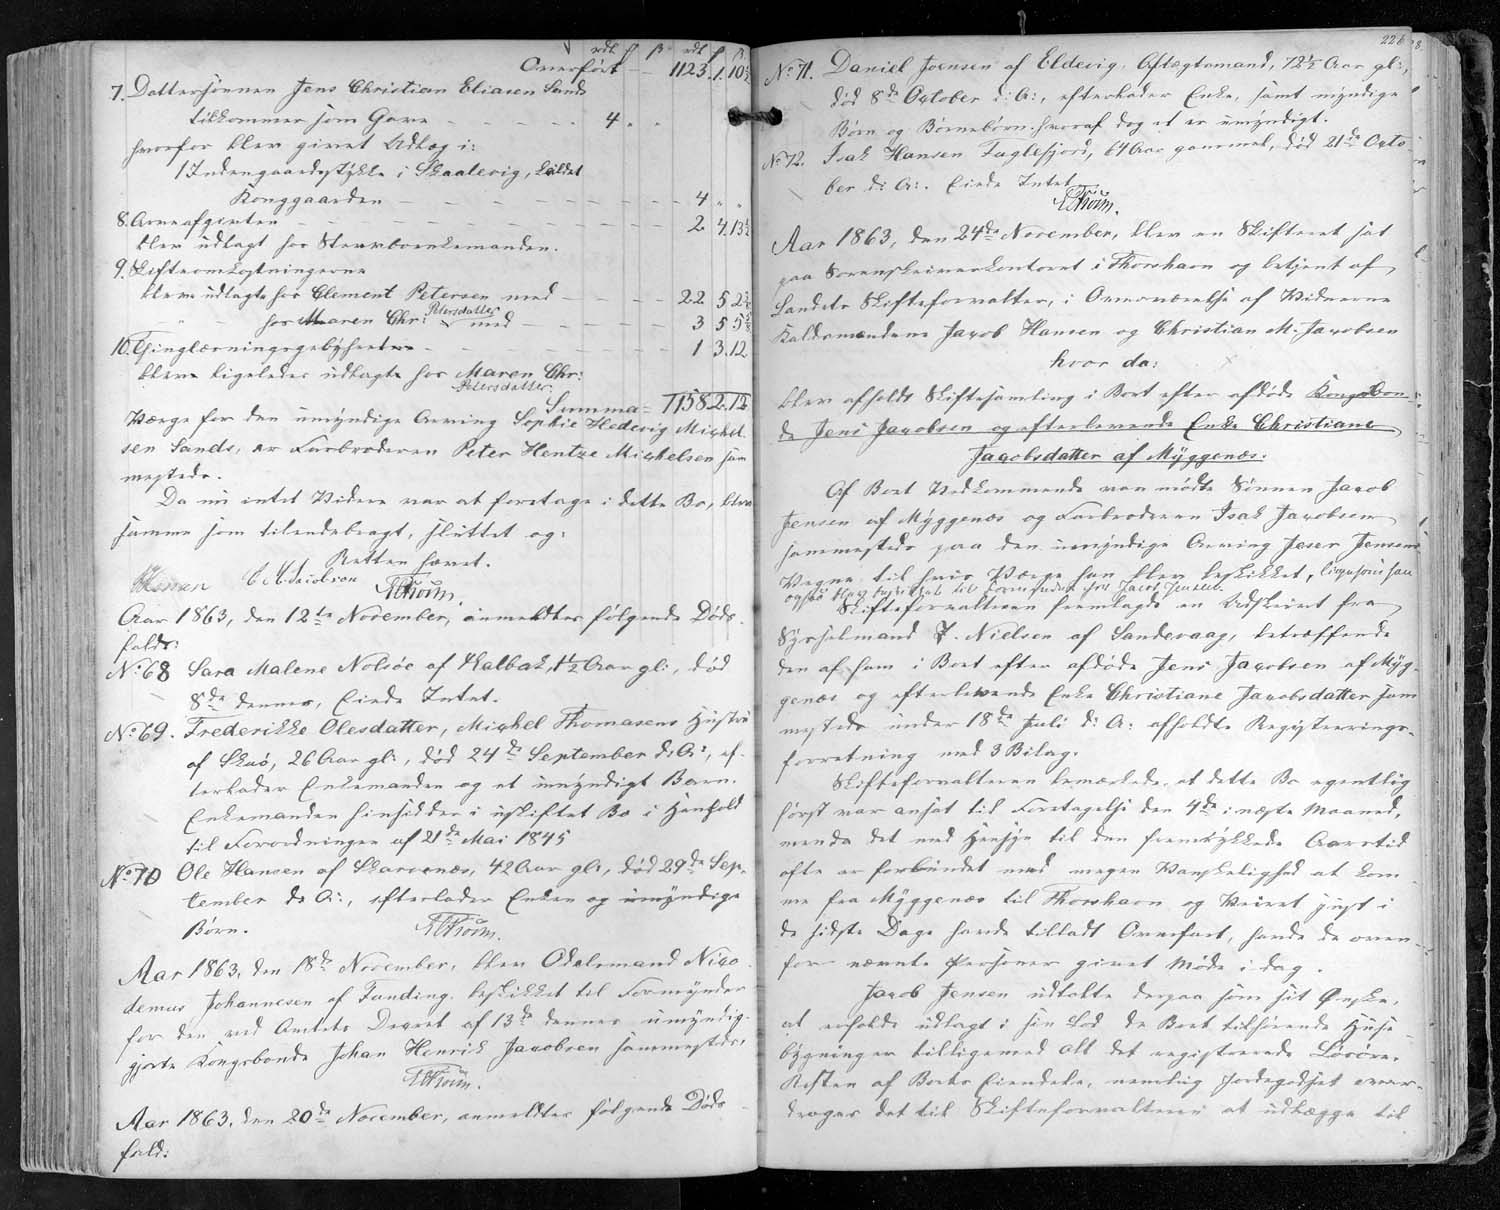 rdl ρ β rdl ρ β
Overført — 1123. 1. 10½
7. Dattersønnen Jens Christian Eliasen Sands
tilkommer som Gave - - - - - 4 „ „
hvorfor blev givet Udlæg i:
1 Indengaardsstykke i Skaalevig, kaldet
Konggaarden - - - - - - - 4 „ „
8. Arveafgiften - - - - - - - 2. 4. 13½
blev udlagt hos Stervboenkemanden.
9. Skifteomkostningerne
bleve udlagte hos Clement Petersen med - - 22 5 2
hos Maren Chr: Petersdatter med - - - - - 3 5 5
10. Thinglæsningsgebyhret - - - - - - 1 3. 12
blev ligeledes udlagt hos Maren Chr:
Petersdatter.
Summa = 1158 2. 12
Værge for den umyndige Arving Sophie Hedevig Michel-
sen Sands, er Farbroderen Peter Hentze Michelsen sam-
mesteds.
Da nu intet Videre var at foretage i dette Bo, blev
samme som tilendebragt, sluttet og:
Retten hævet.
JHansen C M Jacobsen HTröim.
Aar 1863, den 12te November, anmeldtes følgende Døds-
fald:
No. 68 Sara Malene Nolsöe af Kalbak, 1½ Aar gl:, død
8de dennes, Eiede Intet.
No. 69. Frederikke Olesdatter, Michel Thomasens Hustru
af Skuö, 26 Aar gl:, død 24de September d: A:, ef-
terlader Enkemanden og et umyndigt Barn.
Enkemanden hensidder i uskiftet Bo i Henhold
til Forordningen af 21de Mai 1845
No. 70 Ole Hansen af Skarvenæs, 42 Aar gl:, død 29de Sep-
tember d: A:, efterlader Enken og umyndige
Børn. HTröim.
Aar 1863, den 18de November, blev Odelsmand Nico-
demus Johannesen af Funding, beskikket til Formynder
for den ved Amtets Decret af 13de dennes umyndig-
gjorte Kongsbonde Johan Henrik Jacobsen sammesteds.
HTröim.
Aar 1863, den 20de November, anmeldtes følgende Døds-
fald:
No. 71. Daniel Joensen af Eldevig, Aftægtsmand, 72½ Aar gl:,
død 8de October d: A:, efterlader Enke, samt myndige
Børn og Børnebørn hvoraf dog et er umyndigt.
No. 72. Isak Hansen Fuglefjord, 64 Aar gammel, død 21de Octo-
ber d: A:. Eiede Intet
HTröim.
Aar 1863, den 24de November, blev en Skifteret sat
paa Sorenskriverkontoret i Thorshavn og betjent af
Landets Skifteforvalter, i Overværelse af Vidnerne
Kaldsmændene Jacob Hansen og Christian M. Jacobsen
hvor da:
blev afholdt Skiftesamling i Boet efter afdøde Kongsbon-
de Jens Jacobsen og efterlevende Enke Christiane
Jacobsdatter af Myggenæs.
Af Boet Vedkommende var mødte Sønnen Jacob
Jensen af Myggenæs og Farbroderen Isak Jacobsen
sammesteds paa den umyndige Arving Joser Jensens
Vegne til hvis Værge han blev beskikket, ligesom han
ogsaa blev beskikket til Curator for Jacob Jensen.
Skifteforvalteren fremlagde en Udskrivt fra
Sysselmand P. Nielsen af Sandevaag, betræffende
den af ham i Boet efter afdøde Jens Jacobsen af Myg-
genæs og efterlevende Enke Christiane Jacobsdatter sam-
mesteds under 18de Juli d: A: afholdte Registrerings-
forretning med 3 Bilag.
Skifteforvalteren bemærkede, at dette Bo egentlig
først var ansat til Foretagelse den 4de i næste Maaned,
men da det med Hensyn til den fremrykkede Aarstid
ofte er forbundet med megen Vanskelighed at kom-
me fra Myggenæs til Thorshavn og Veiret just i
de sidste Dage havde tilladt Overfart, havde de oven-
for nævnte Personer givet Møde i Dag.
Jacob Jensen udtalte derpaa som sit Ønske,
at erholde udlagt i sin Lod de Boet tilhørende Huse-
bygninger tilligemed alt det registrerede Løsøre.
Resten af Boets Eiendele, nemlig Jordegodset over-
drages det til Skifteforvalteren at udlægge til